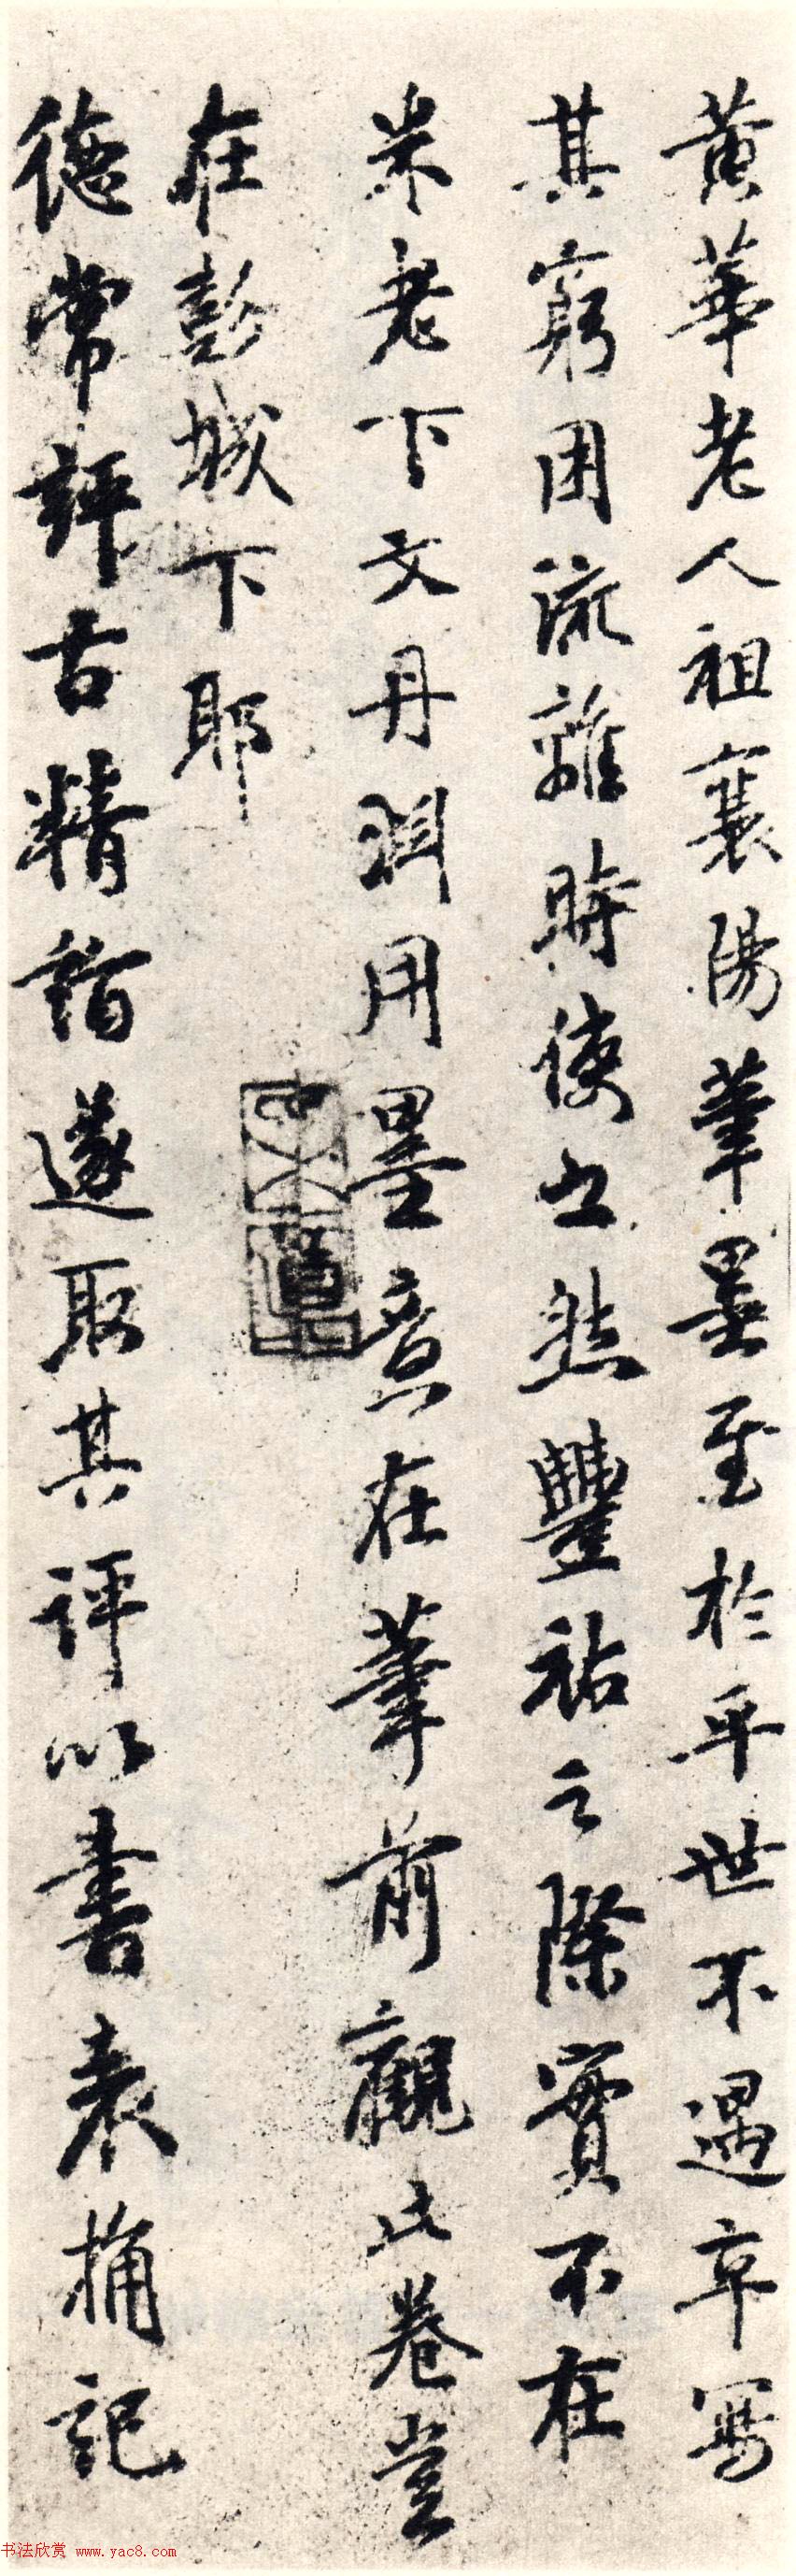 黃華老人祖襄陽筆墨至於平世不遇卒寫
其窮困流離時使之然豐祐之際實不在
米老下文丹淵用墨意在筆前觀此卷豈
在彭城下耶
德常評古精詣遂取其評以書袁桷記
书法欣赏 www.yac8.com